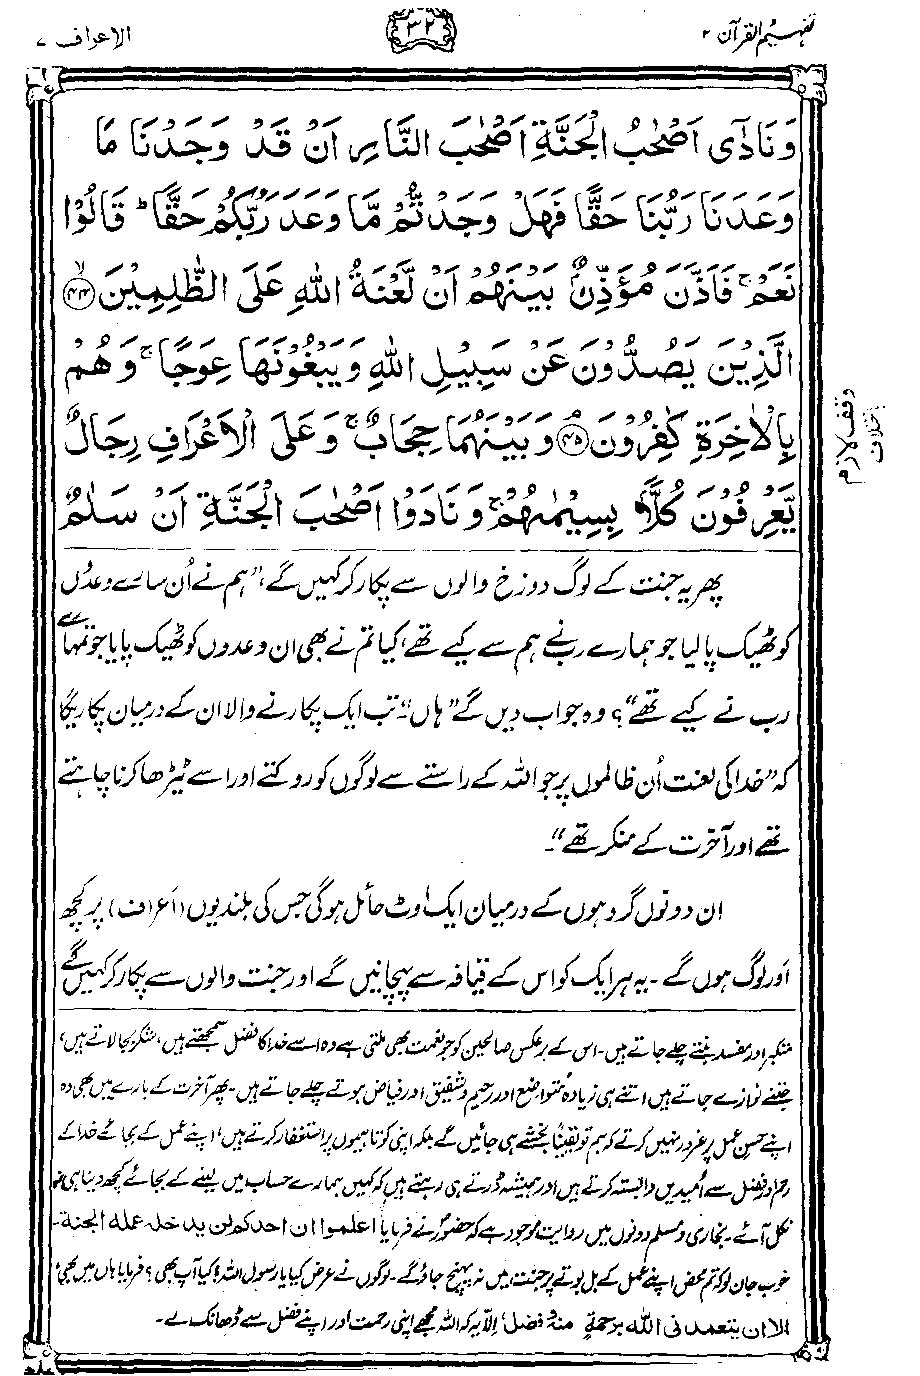 تفہیم القرآن ۲
۳۲
الاعراف ۷
وَنَادٰٓى اَصْحٰبُ الْجَنَّةِ اَصْحٰبَ النَّارِ اَنْ قَدْ وَجَدْنَا مَا
وَعَدَنَا رَبُّنَا حَقًّا فَهَلْ وَجَدْتُّمْ مَّا وَعَدَ رَبُّكُمْ حَقًّا ؕ قَالُوْا
نَعَمْ ۚ فَاَذَّنَ مُؤَذِّنٌۢ بَيْنَهُمْ اَنْ لَّعْنَةُ اللّٰهِ عَلَى الظّٰلِمِيْنَ ۙ﴿۴۴﴾
الَّذِيْنَ يَصُدُّوْنَ عَنْ سَبِيْلِ اللّٰهِ وَيَبْغُوْنَهَا عِوَجًا ۚ وَهُمْ
بِالْاٰخِرَةِ كٰفِرُوْنَ ۘ﴿۴۵﴾ وَبَيْنَهُمَا حِجَابٌ ۚ وَعَلَى الْاَعْرَافِ رِجَالٌ
يَّعْرِفُوْنَ كُلًّاۢ بِسِيْمٰىهُمْ ۚ وَنَادَوْا اَصْحٰبَ الْجَنَّةِ اَنْ سَلٰمٌ
وقف لازم
پھر یہ جنت کے لوگ دوزخ والوں سے پکار کر کہیں گے، ”ہم نے اُن سارے وعدوں
کو ٹھیک پا لیا جو ہمارے رب نے ہم سے کیے تھے، کیا تم نے بھی ان وعدوں کو ٹھیک پایا جو تمہارے
رب نے کیے تھے“؟ وہ جواب دیں گے ”ہاں“۔ تب ایک پکارنے والا ان کے درمیان پکارے گا
کہ ”خدا کی لعنت اُن ظالموں پر جو اللہ کے راستے سے لوگوں کو روکتے اور اسے ٹیڑھا کرنا چاہتے
تھے اور آخرت کے منکر تھے“۔
ان دونوں گروہوں کے درمیان ایک اوٹ حائل ہوگی جس کی بلندیوں (اَعراف) پر کچھ
اور لوگ ہوں گے۔ یہ ہر ایک کو اس کے قیافہ سے پہچانیں گے اور جنت والوں سے پکار کر کہیں گے
متکبر اور مفسد بنتے چلے جاتے ہیں۔ اس کے برعکس صالحین کو جو نعمت بھی ملتی ہے وہ اسے خدا کا فضل سمجھتے ہیں، شکر بجا لاتے ہیں،
جتنے نوازے جاتے ہیں اتنے ہی زیادہ متواضع اور رحیم و شفیق اور فیاض ہوتے چلے جاتے ہیں۔ پھر آخرت کے بارے میں بھی وہ
اپنے حسنِ عمل پر غرور نہیں کرتے کہ ہم تو یقیناً بخشے ہی جائیں گے بلکہ اپنی کوتاہیوں پر استغفار کرتے ہیں، اپنے عمل کے بجائے خدا کے
رحم و فضل سے اُمیدیں وابستہ کرتے ہیں اور ہمیشہ ڈرتے ہی رہتے ہیں کہ کہیں ہمارے حساب میں لینے کے بجائے کچھ دینا ہی نہ
نکل آئے۔ بخاری و مسلم دونوں میں روایت موجود ہے کہ حضورؐ نے فرمایا اعلموا ان احدکم لن یدخلہ عملہ الجنة۔
خوب جان لو کہ تم محض اپنے عمل کے بل بوتے پر جنت میں نہ پہنچ جاؤ گے۔ لوگوں نے عرض کیا یا رسول اللہ! کیا آپ بھی؟ فرمایا ہاں میں بھی،
الا ان یتغمدنی اللہ برحمةٍ منهُ وفضل، اِلّا یہ کہ اللہ مجھے اپنی رحمت اور اپنے فضل سے ڈھانک لے۔